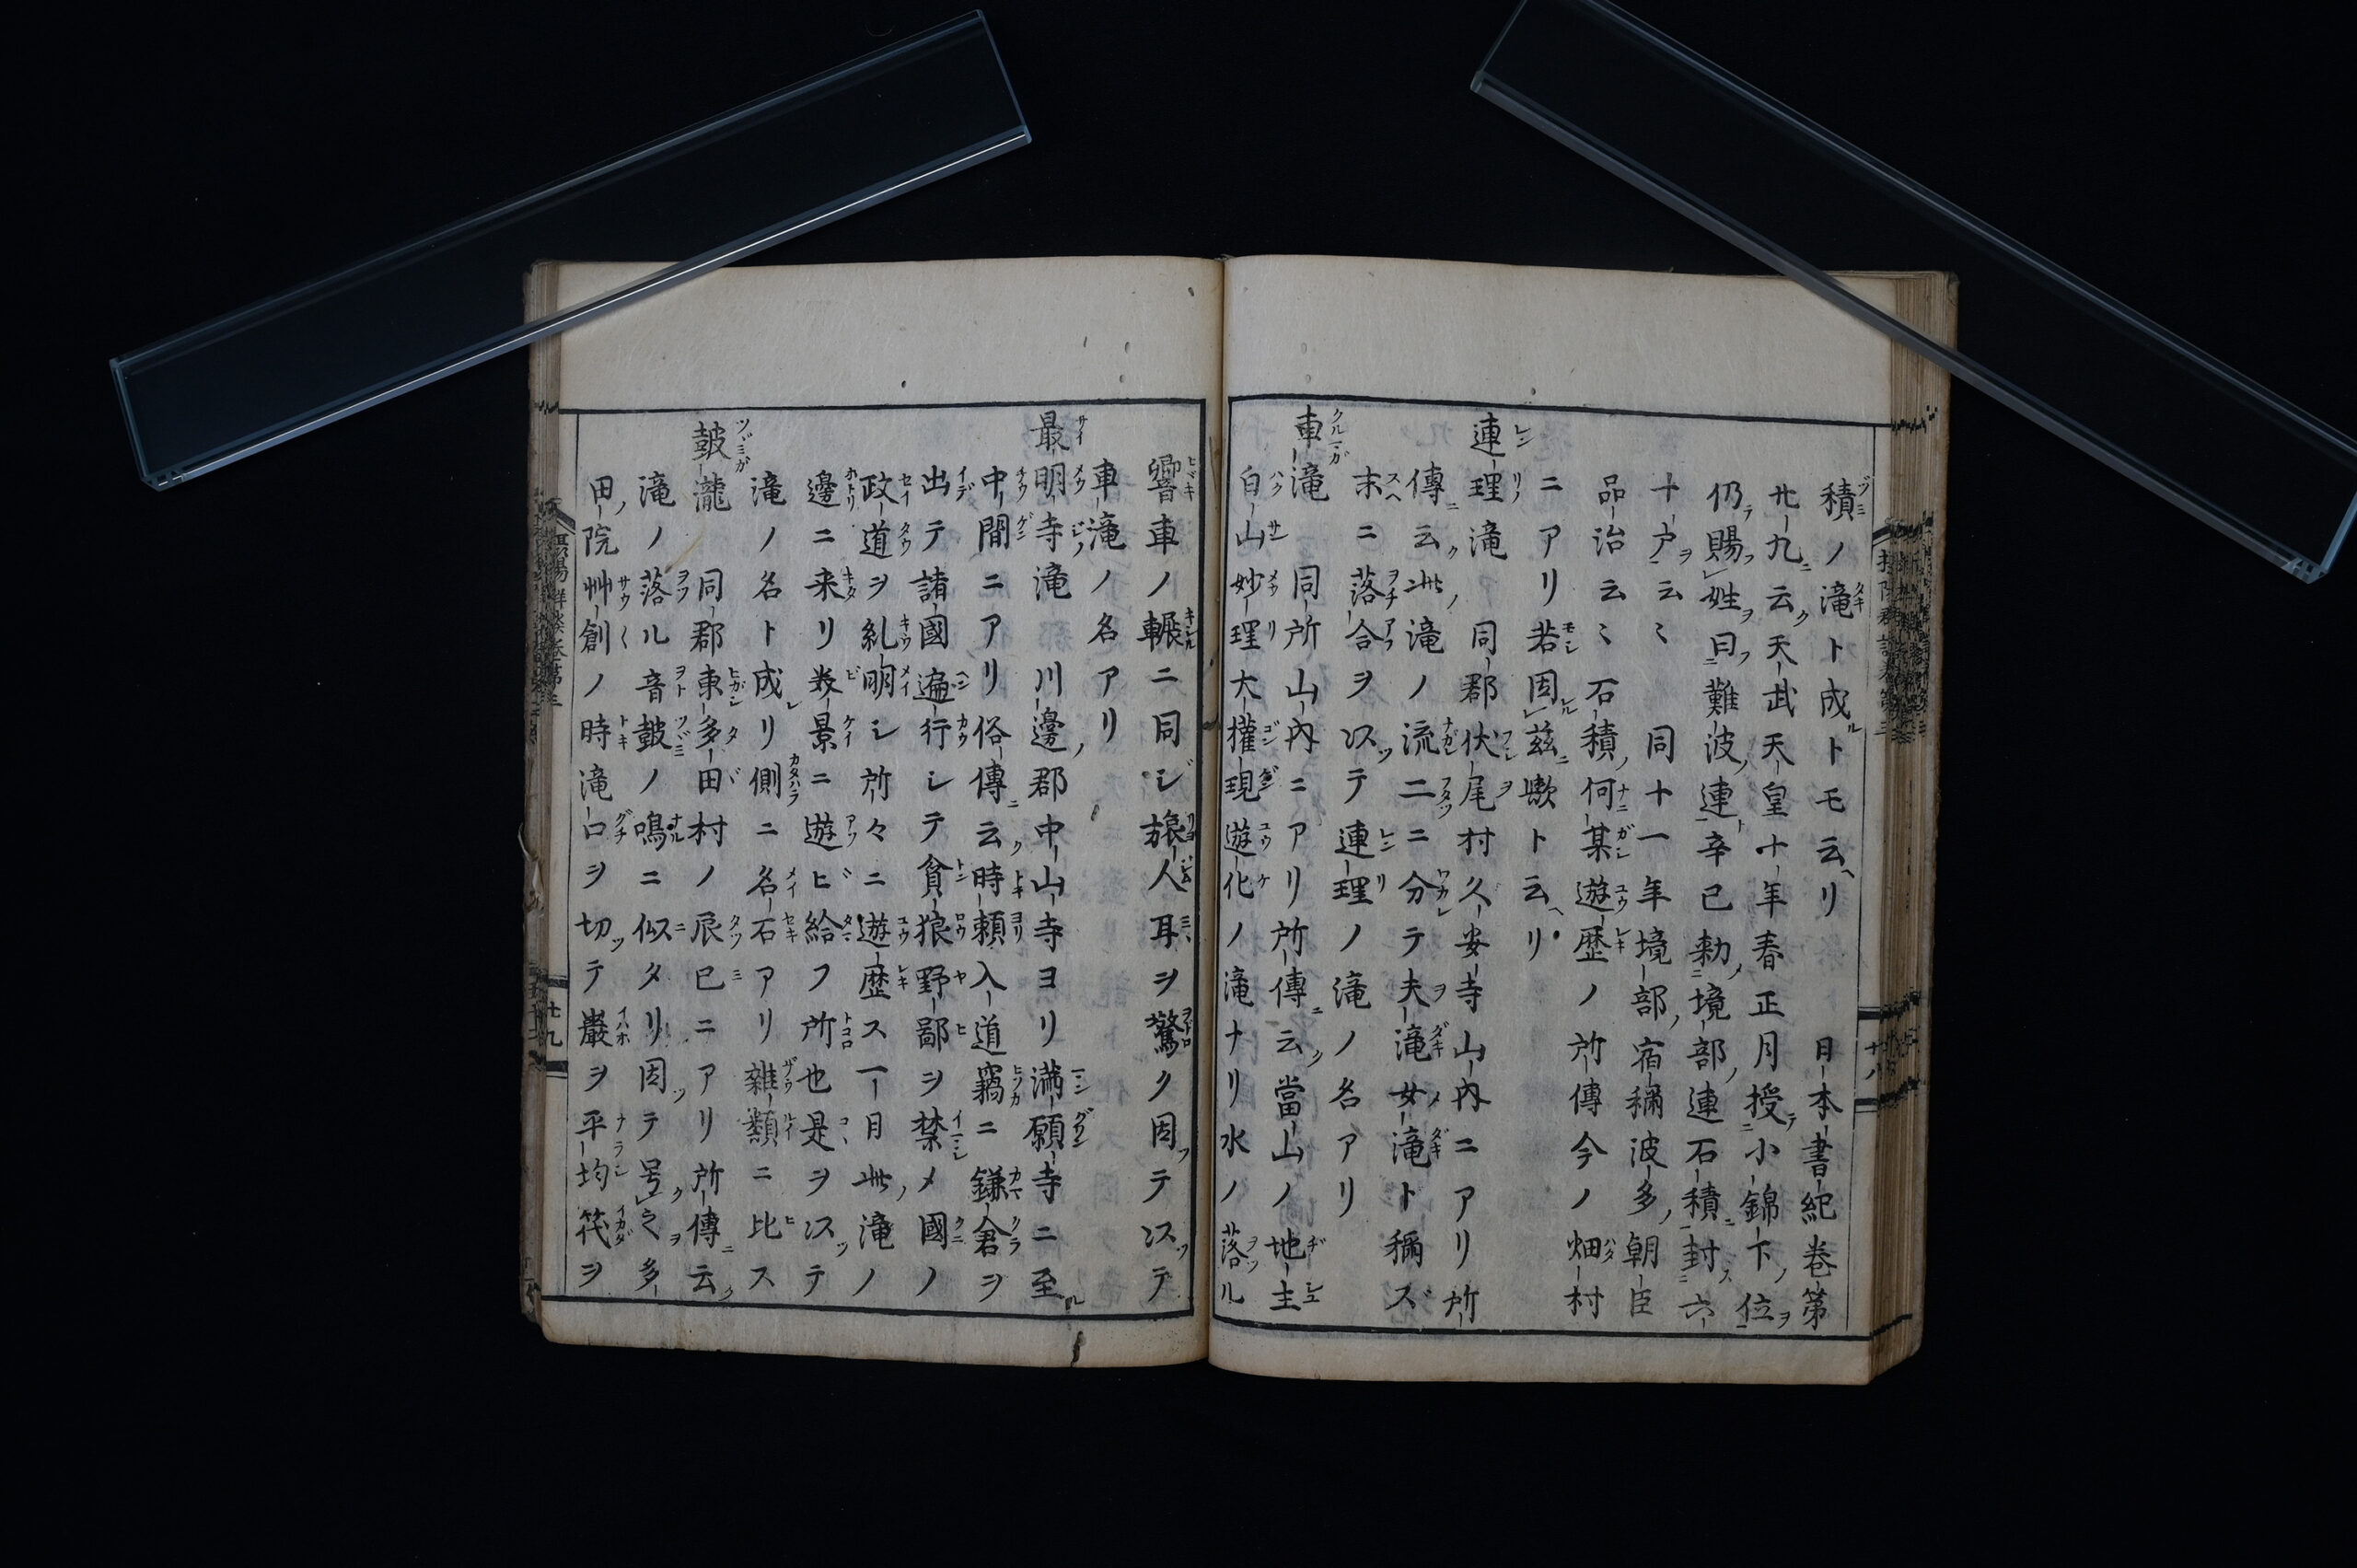 積ノ滝ト成トモ云リ　日本書紀巻第
廿九云天武天皇十年春正月授小錦下位
仍賜姓曰難波連辛巳勅境部連石積封六
十戸云〻　同十一年境部宿祢波多朝臣
品治云〻石積何某遊歴ノ所傳今ノ畑村
ニアリ若因茲歟ト云リ
連理滝　同郡伏尾村久安寺山内ニアリ所
傳云此滝ノ流二ニ分テ夫滝女滝ト稱ズ
末ニ落合ヲ以テ連理ノ滝ノ名アリ
車滝　同所山内ニアリ所傳云當山ノ地主
白山妙理大權現遊化ノ滝ナリ水ノ落ル
響車ノ輾ニ同ジ旅人耳ヲ驚ク因テ以テ
車滝ノ名アリ
最明寺滝　川邊郡中山寺ヨリ満願寺ニ至
中間ニアリ俗傳云時頼入道竊ニ鎌倉ヲ
出テ諸國遍行シテ貪狼野鄙ヲ禁メ國ノ
政道ヲ糺明シ所々ニ遊歴ス一日此滝ノ
邊ニ来リ美景ニ遊ビ給フ所也是ヲ以テ
滝ノ名ト成リ側ニ名石アリ雜類ニ比ス
鼓瀧　同郡東多田村ノ辰巳ニアリ所傳云
滝ノ落ル音鼓ノ鳴ニ似タリ因テ号之多
田院艸創ノ時滝口ヲ切テ巌ヲ平均筏ヲ
十八
廿九